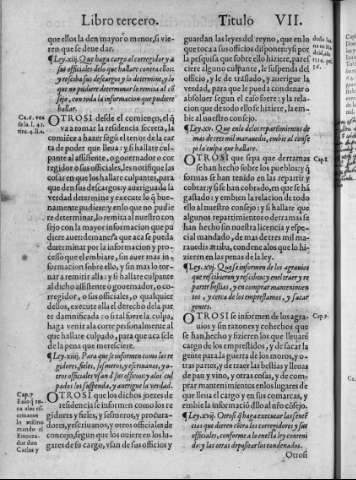 Libro tercero.
Titulo VII.
que ellos la den mayor o menor, si vie-
ren que se deue dar.
¶Ley.xiij. Que haga cargo al corregidor y a
sus officiales delo que hallare contra ellos:
y resciba sus descargos y lo determine, y lo
que no pudiere determinar lo remita al cō
sejo, con toda la informacion que pudiere
hallar.
OTROSI desde el comienço, el q̄
va a tomar la residencia secreta, la
comiēce a hazer segū el tenor de la car
ta de poder que lleua: y si hallare cul-
pante al assistente, o gouernador o cor-
regidor o sus officiales, les notifique las
cosas en que los hallare culpantes, para
que den sus descargos: y aueriguada la
verdad determine y execute lo que bue-
namente pudiere: y enlo que no pudie
re determinar, lo remita al nuestro con
sejo con la mayor informacion que pu
diere auer:
minar por la informacion y pro-
cesso que el embiare, sin auer mas in-
formacion sobre ello, y sin mas lo tor-
nar a remitir alla: y si hallare culpante
al dicho assistente o gouernador, o cor-
regidor, o sus officiales, o qualquier
dellos, execute alla el derecho dela par
te damnificada: o si tal fuere la culpa,
haga venir ala corte personalmente al
que hallare culpado, para que aca se le
de la pena que meresciere.
¶Ley.xiiij. Para que se informen como los re
gidores, fieles, sesmeros, y escriuanos, y o-
tros officiales vsan de sus officios: y alos cul
pados los suspenda, y aueriguē la verdad.
OTROSI que los dichos juezes de
residencia se informen como los re
gidores y fieles, y sesmeros, y procura-
dores, y escriuanos, y otros officiales de
concejo, segun que los ouiere en los lu-
gares de su cargo, vsan de sus officios y
guardan las leyes del reyno, que en lo
que toca a sus officios disponen: y si por
la pesquisa que sobre ello hiziere, pares
ciere alguno culpante, le suspenda del
officio, y le de traslado, y auerigue la
verdad, para que le pueda condenar o
absoluer segun el caso fuere: y la rela-
cion que de todo ello se hiziere, la em-
bie al nuestro consejo.
¶Ley.xv. Que enlo delos repartimientos de
mas de tres mil marauedis, embie al conse-
jo la culpa que hallare.
OTROSI que sepa que derramas
se han hecho sobre los pueblos: y q̄
formas se han tenido en las repartir y
cobrar: y si se han cobrado, en que se hā
gastado: y embien la relacion de todo
ello al nuestro consejo: y si hallare que
algunos repartimientos o derramas se
han hecho sin nuestra licencia y especial
mandado, de mas de tres mil ma-
rauedis arriba, condene alos que lo hi-
zieren en las penas de la ley.
¶Ley.xvj. Que se informen de los agrauios
que rescibieron y rescibē, y enel traer, y re
partir bestias, y en comprar mantenimien
tos, y cerca de los emprestamos, y sacar
gentes.
OTROSI se informen de los agra-
uios y sin razones y cohechos que
se han hecho y fizieren los que lleuarē
cargo de los emprestidos, y de sacar la
gente para la guerra de los moros, y o-
tras partes, y de traer las bestias y lleua
de pan y vino, y otras cosas, y de com-
prar mantenimientos en los lugares de
que lleua el cargo y en sus comarcas, y
embie la informaciō dello al nr̄o cōsejo.
¶Ley.xvij. Otrosi q̄ haga executar las senten
cias que dieren cōtra los corregidores y sus
officiales, conforme a lo en esta ley conteni-
do: y a las otras depositarlos condenados.
Otrosi
Cap.7
Cap.8.
Cap.9.